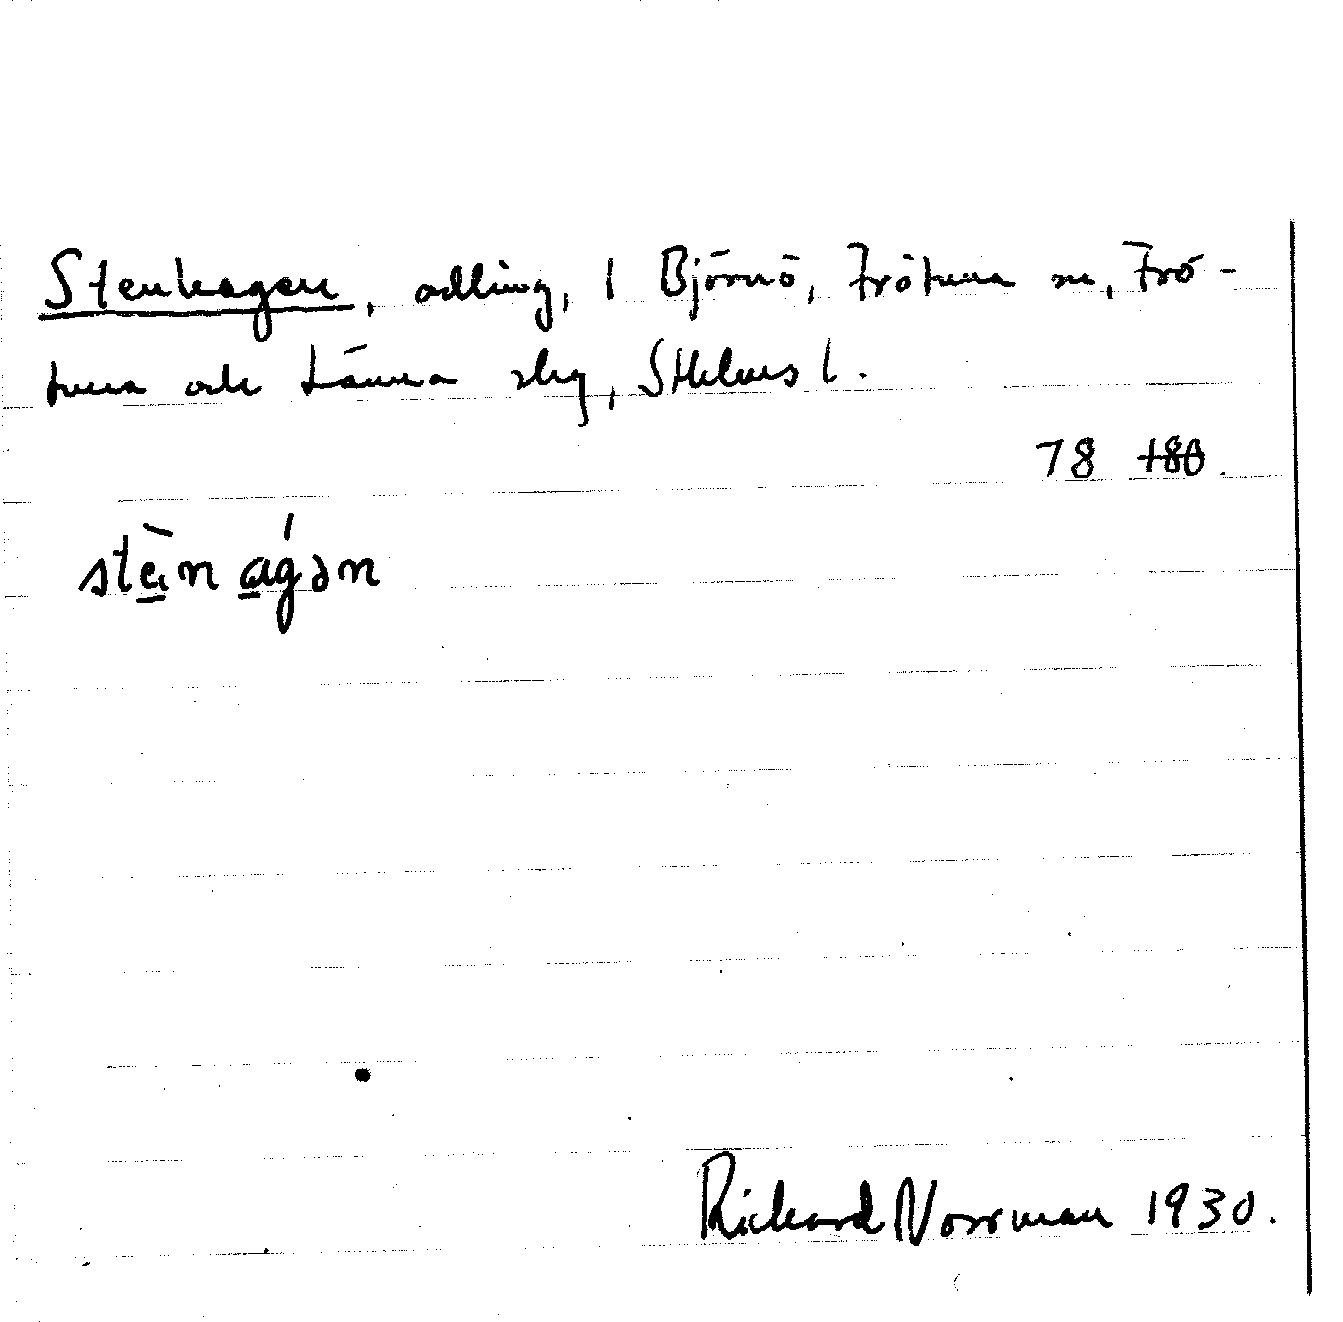 Stenhagen, odling, 1 Björnö, Frötuna sn, Frö-
tuna och Länna skg, Sthlms l.
78 180.
stèn ágən
Rickard Norrman 1930.